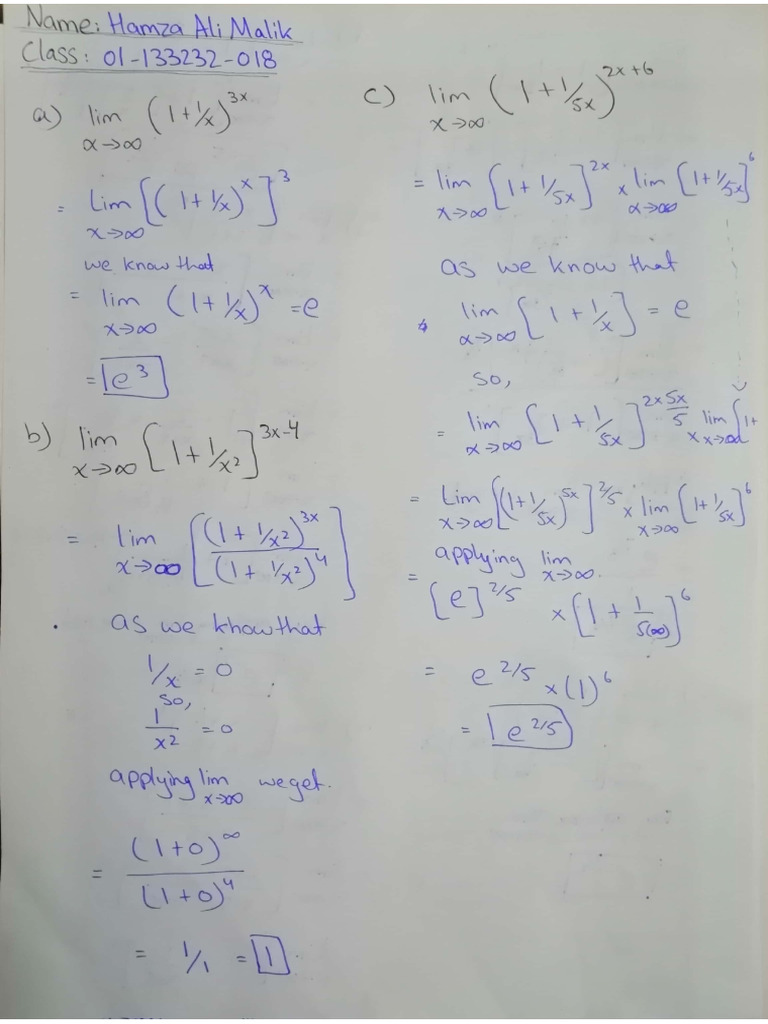 Name: Hamza Ali Malik
Class: 01-133232-018
a) lim x→∞ (1+1/x)^3x
= Lim x→∞ [(1+1/x)^x]^3
we know that
= lim x→∞ (1+1/x)^x = e
= e^3
b) lim x→∞ [1+1/x^2]^3x-4
= lim x→∞ [(1+1/x^2)^3x / (1+1/x^2)^4]
as we know that
1/x = 0
so,
1/x^2 = 0
applying lim x→∞ we get.
= (1+0)^∞ / (1+0)^4
= 1/1 = 1
c) lim x→∞ (1+1/5x)^2x+6
= lim x→∞ [1+1/5x]^2x × lim x→∞ [1+1/5x]^6
as we know that
lim x→∞ [1+1/x] = e
so,
= lim x→∞ [1+1/5x]^2×5x/5 × lim x→∞ [1+
= Lim x→∞ [(1+1/5x)^5x]^2/5 × lim x→∞ [1+1/5x]^6
applying lim x→∞.
= [e]^2/5 × [1+1/5(∞)]^6
= e^2/5 × (1)^6
= e^2/5